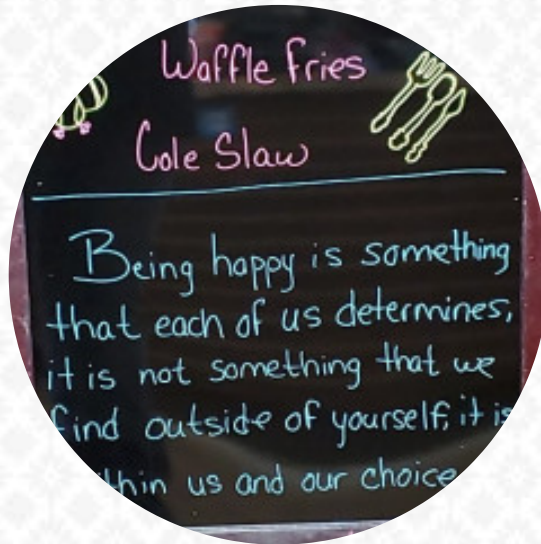 Waffle Fries
Cole Slaw
Being happy is something
that each of us determines,
it is not something that we
find outside of yourself, it is
within us and our choice